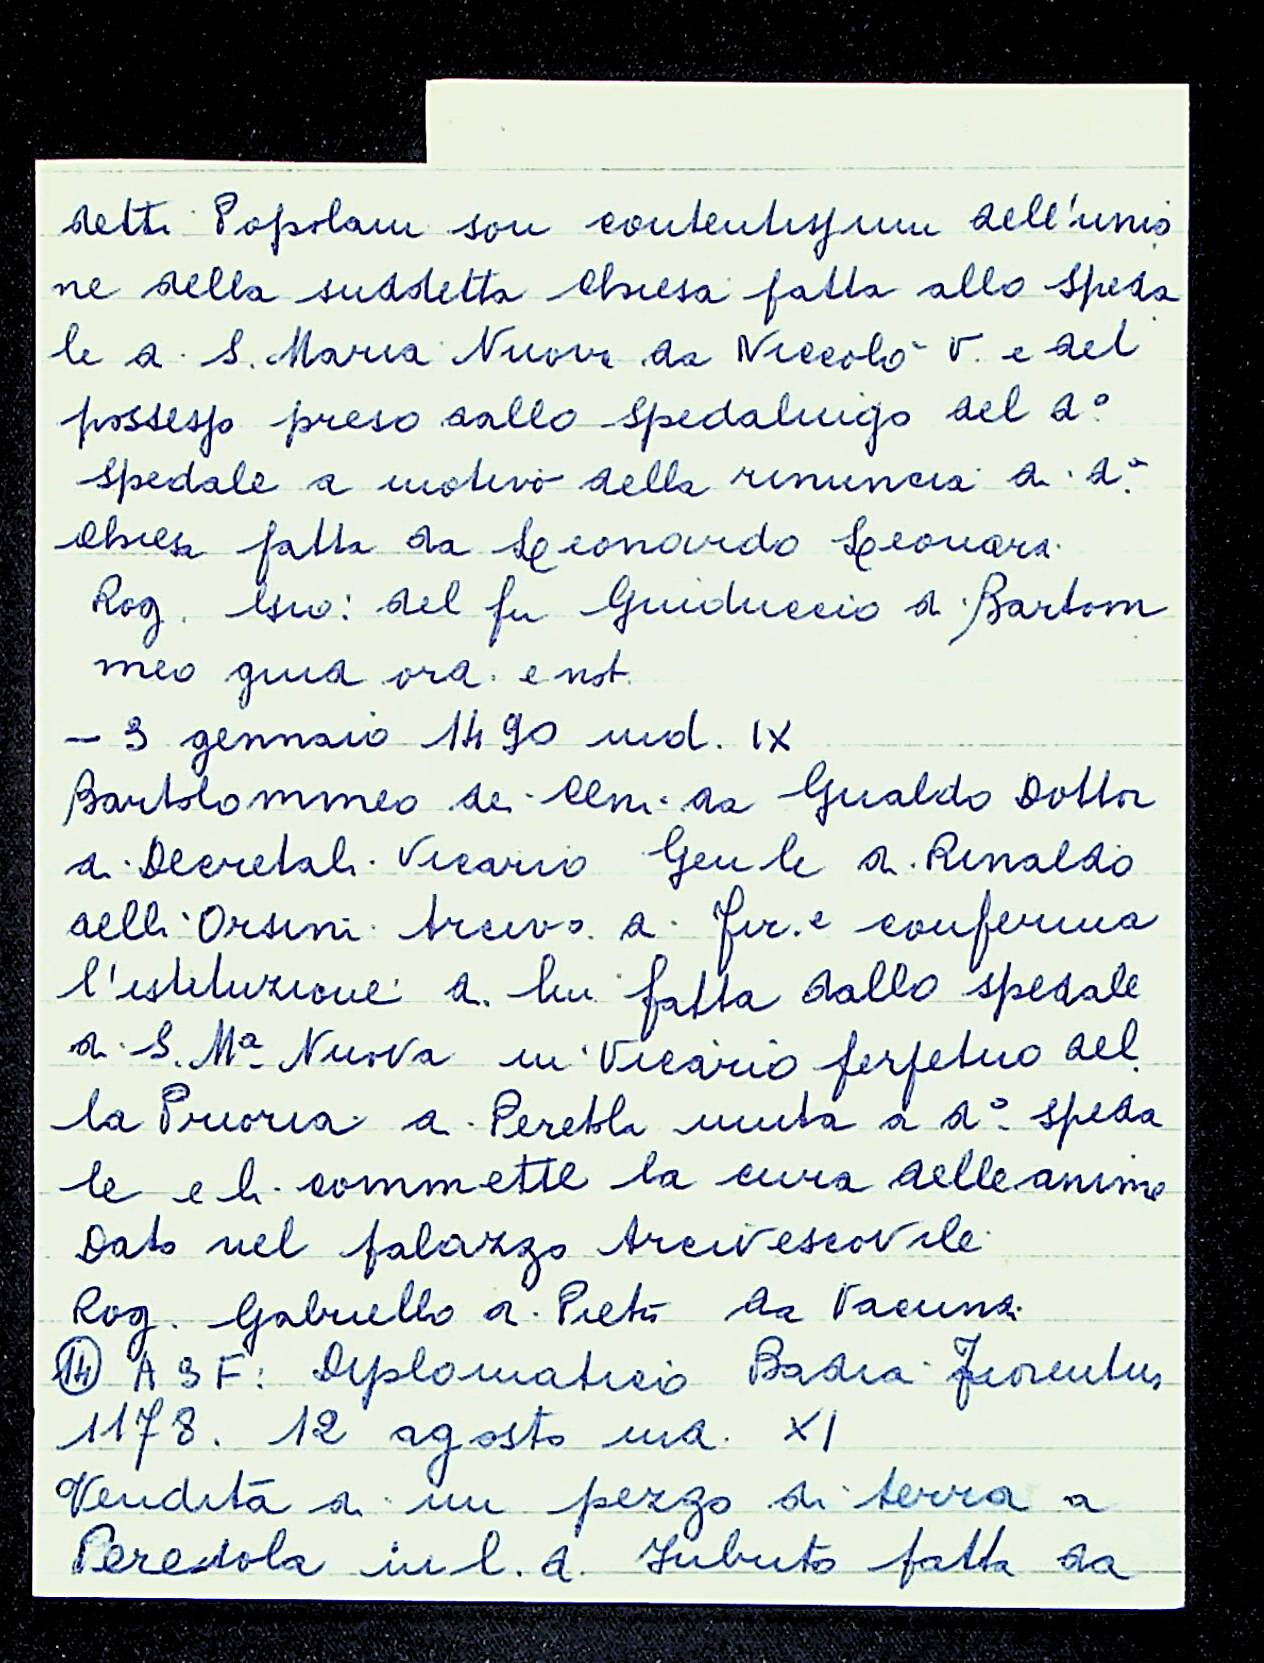 detti Popolani son contentissimi dell'unio
ne della suddetta Chiesa fatta allo Speda
le di S. Maria Nuova da Niccolò V. e del
possesso preso dallo Spedalingo del d.º
Spedale a motivo della rinuncia di d.ª
Chiesa fatta da Leonardo Leonardi
Rog. del fu Guiduccio di Bartom
meo giud ord. e not.
- 3 gennaio 1490 ind. IX
Bartolommeo dei da Gualdo Dottor
di Decretali Vicario Gen le di Rinaldo
delli Orsini Arcivo. di Fir.e conferma
l'istituzione di lui fatta dallo spedale
di S. Mª Nuova in Vicario perpetuo del
la Prioria di Peretola unita a d.º speda
le e li commette la cura delle anime
Dato nel palazzo Arcivescovile
Rog. Gabriello di Pietro da
14 ASF: Diplomatico Badia Fiorentina
1178. 12 agosto ind. XI
Vendita di un pezzo di terra a
Peretola in l. d. fatta da